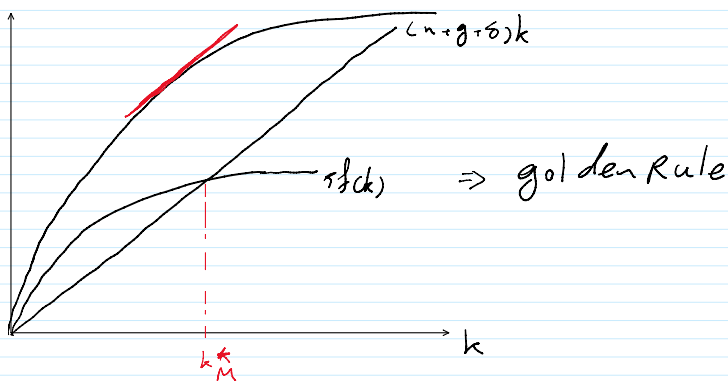 (n+g+δ)k
sf(k)
⇒ golden Rule
k
k*M